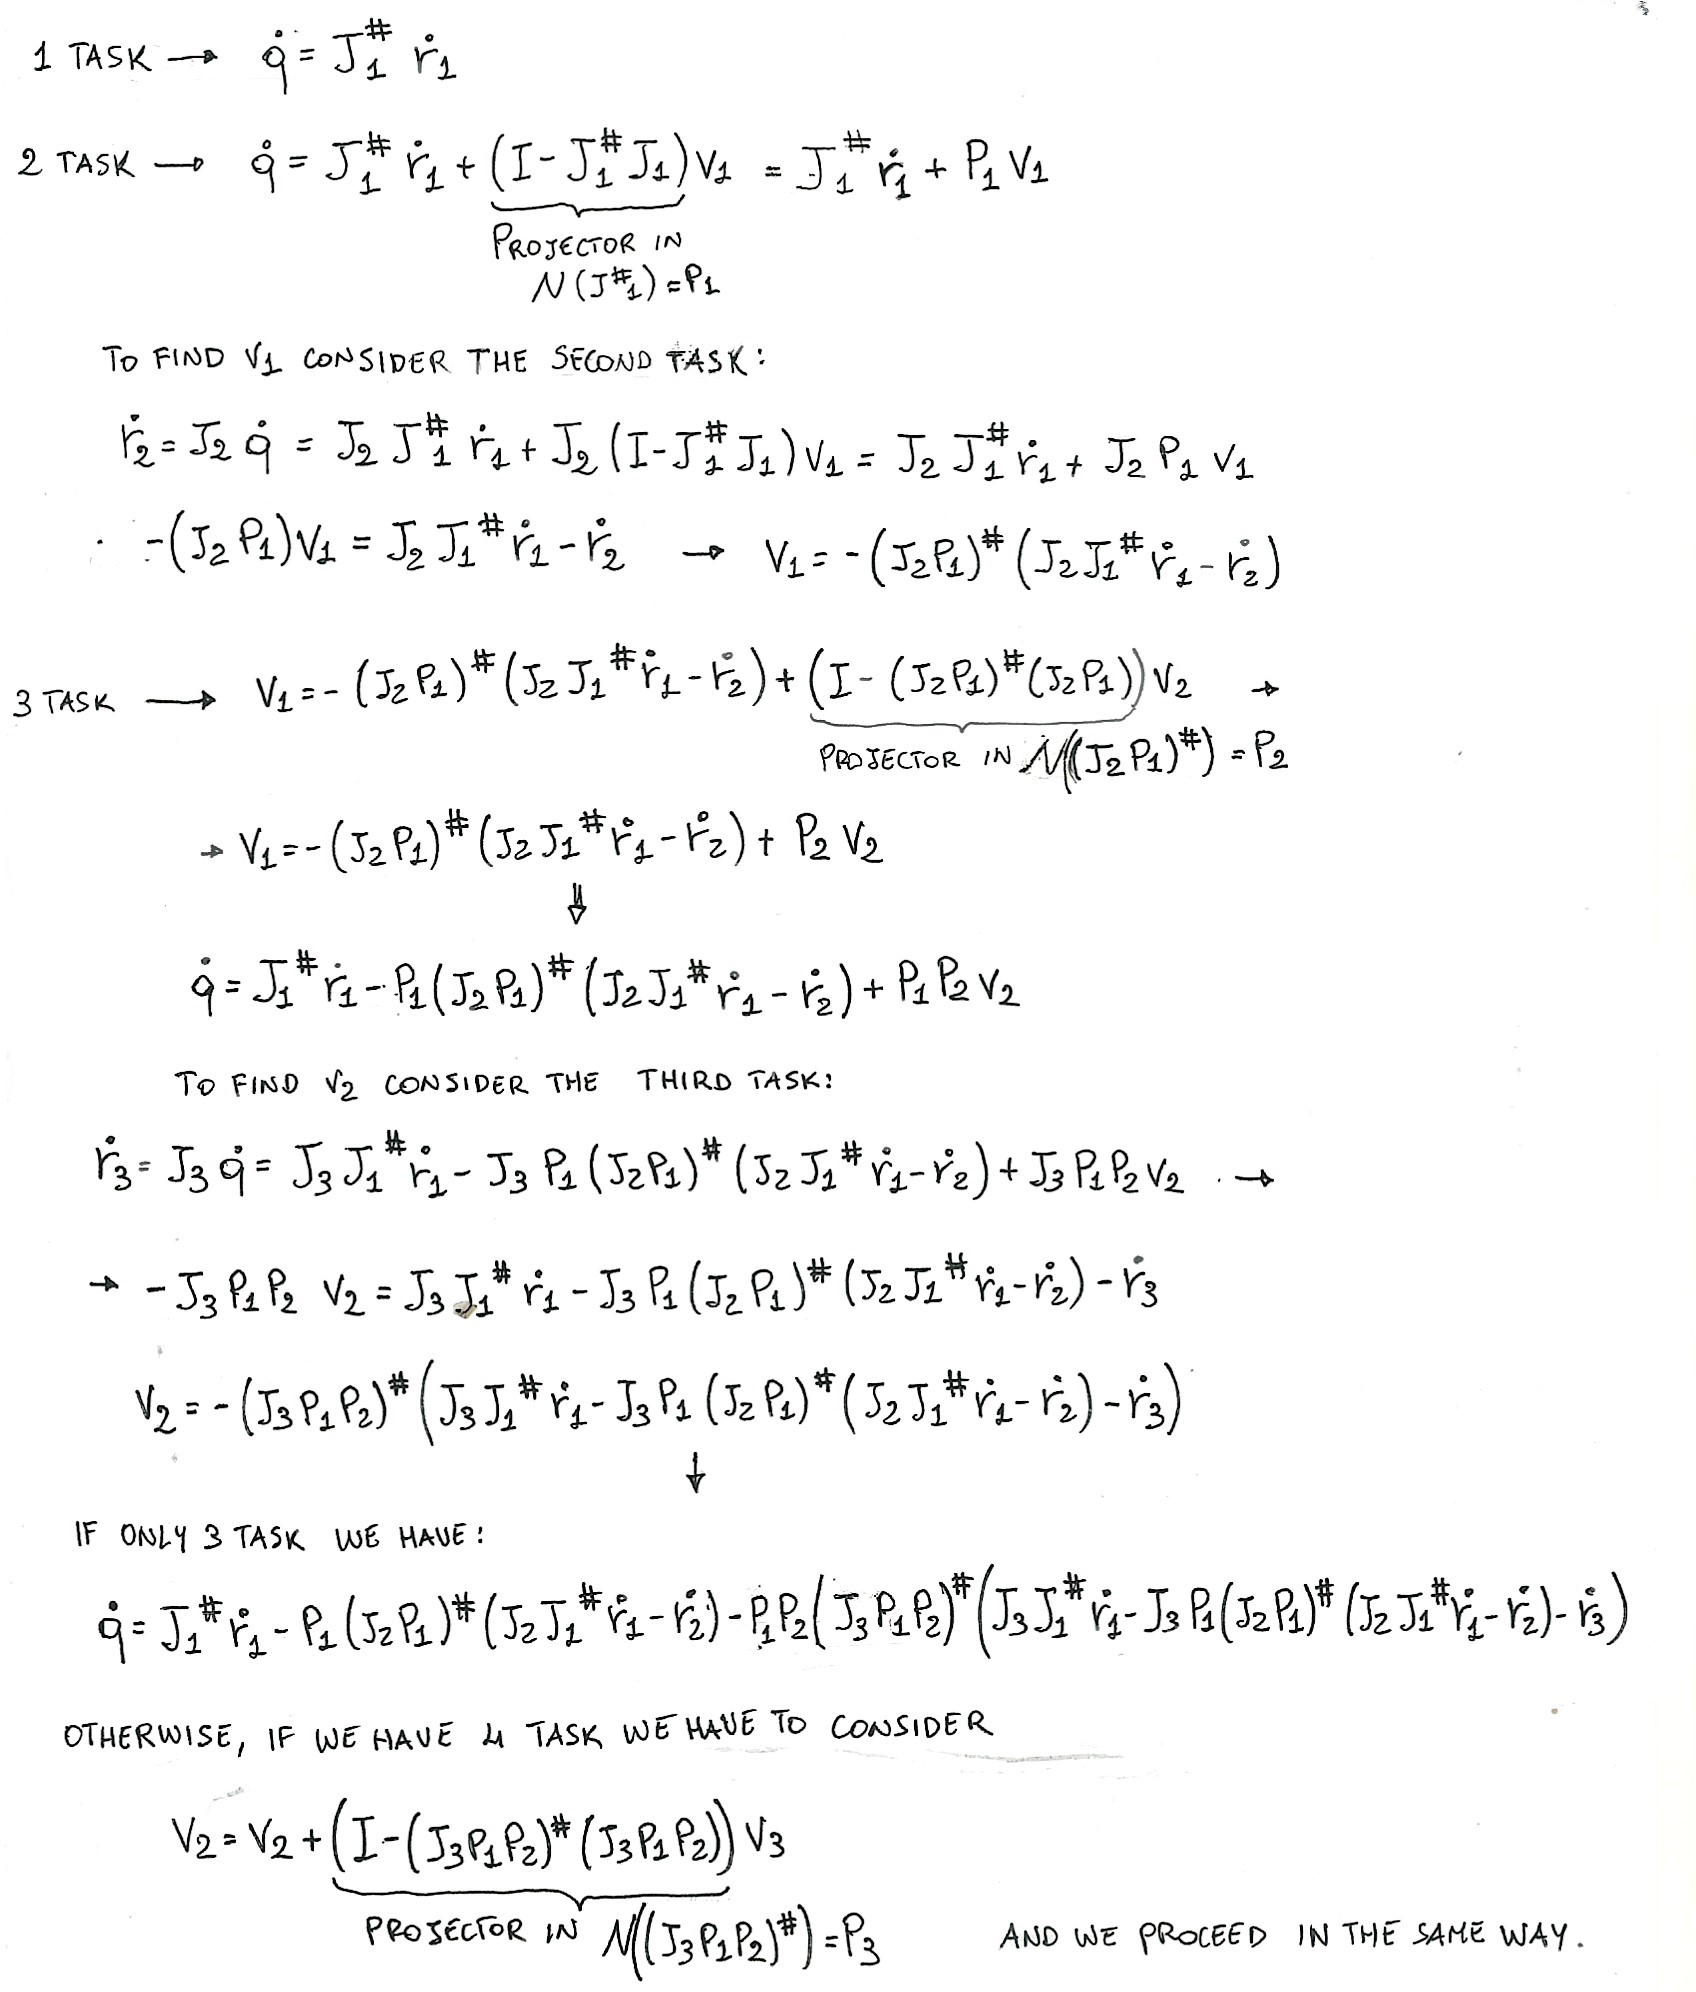 1 TASK → q̇ = J₁^# ṙ₁
2 TASK → q̇ = J₁^# ṙ₁ + (I - J₁^# J₁) V₁ = J₁^# ṙ₁ + P₁ V₁
PROJECTOR IN
N(J^#₁) = P₁
TO FIND V₁ CONSIDER THE SECOND TASK:
ṙ₂ = J₂ q̇ = J₂ J₁^# ṙ₁ + J₂ (I - J₁^# J₁) V₁ = J₂ J₁^# ṙ₁ + J₂ P₁ V₁
-(J₂ P₁) V₁ = J₂ J₁^# ṙ₁ - ṙ₂ → V₁ = -(J₂P₁)^# (J₂J₁^# ṙ₁ - ṙ₂)
3 TASK → V₁ = -(J₂P₁)^# (J₂J₁^# ṙ₁ - ṙ₂) + (I - (J₂P₁)^# (J₂P₁)) V₂ →
PROJECTOR IN N((J₂P₁)^#) = P₂
→ V₁ = -(J₂P₁)^# (J₂J₁^# ṙ₁ - ṙ₂) + P₂ V₂
⇓
q̇ = J₁^# ṙ₁ - P₁(J₂P₁)^# (J₂J₁^# ṙ₁ - ṙ₂) + P₁P₂V₂
TO FIND V₂ CONSIDER THE THIRD TASK:
ṙ₃ = J₃ q̇ = J₃J₁^# ṙ₁ - J₃ P₁ (J₂P₁)^# (J₂J₁^# ṙ₁ - ṙ₂) + J₃P₁P₂V₂ →
→ -J₃P₁P₂ V₂ = J₃J₁^# ṙ₁ - J₃P₁(J₂P₁)^# (J₂J₁^# ṙ₁ - ṙ₂) - ṙ₃
V₂ = -(J₃P₁P₂)^# (J₃J₁^# ṙ₁ - J₃P₁(J₂P₁)^# (J₂J₁^# ṙ₁ - ṙ₂) - ṙ₃)
↓
IF ONLY 3 TASK WE HAVE:
q̇ = J₁^# ṙ₁ - P₁(J₂P₁)^# (J₂J₁^# ṙ₁ - ṙ₂) - P₁P₂(J₃P₁P₂)^# (J₃J₁^# ṙ₁ - J₃P₁(J₂P₁)^# (J₂J₁^# ṙ₁ - ṙ₂) - ṙ₃)
OTHERWISE, IF WE HAVE 4 TASK WE HAVE TO CONSIDER
V₂ = V₂ + (I - (J₃P₁P₂)^# (J₃P₁P₂)) V₃
PROJECTOR IN N((J₃P₁P₂)^#) = P₃ AND WE PROCEED IN THE SAME WAY.